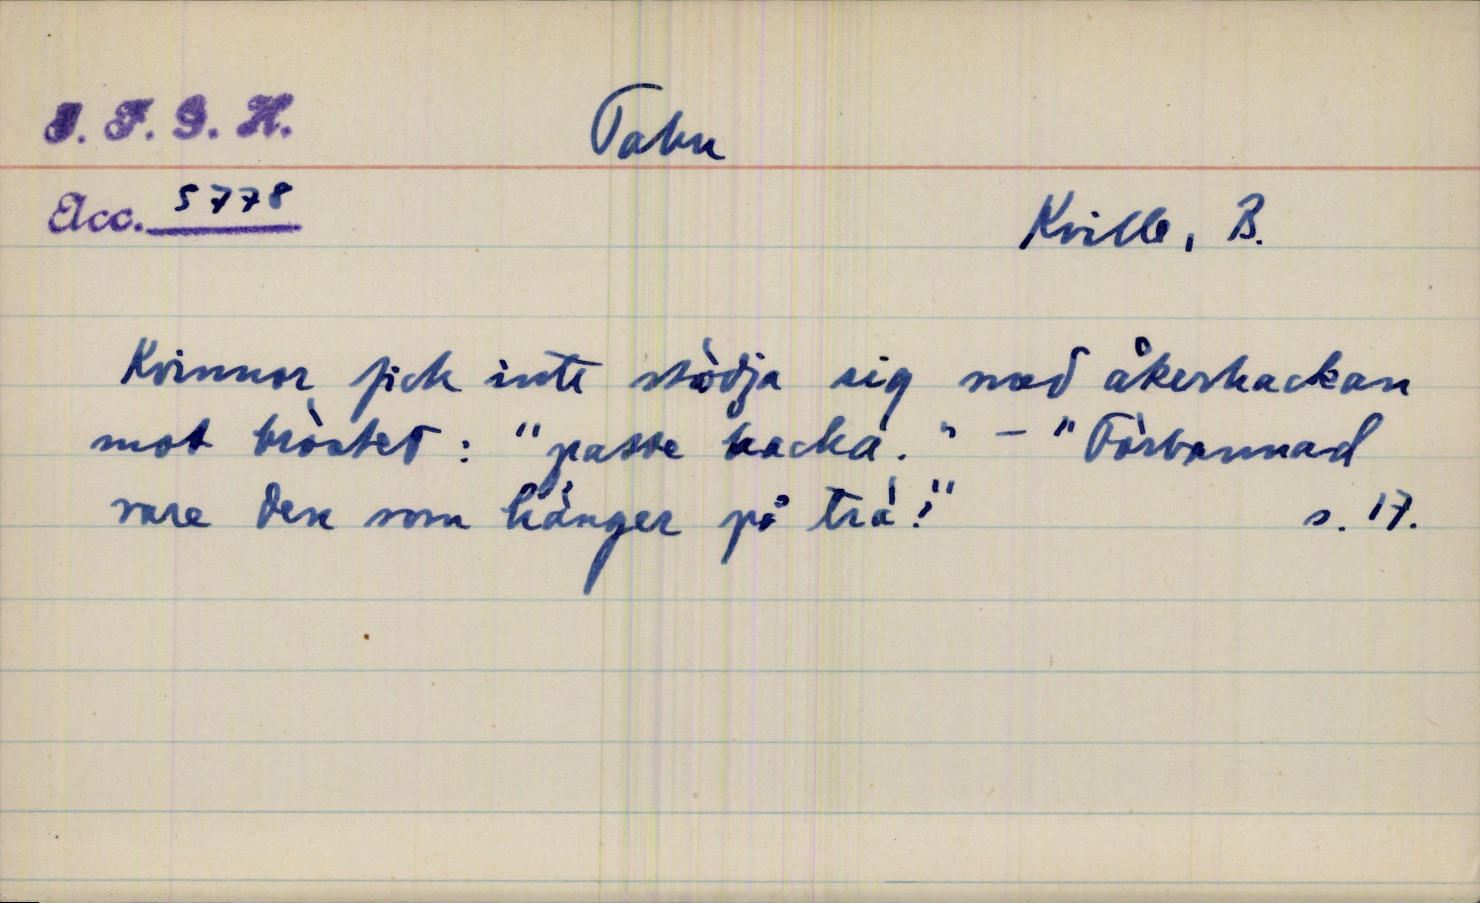 I. F. G. H.
Tabu
Acc. 5778
Kville, B.
Kvinnor fick inte stödja sig med åkerhackan
mot bröstet: "passe hacka." - "Förbannad
vare den som hänger på trä!"
s. 17.